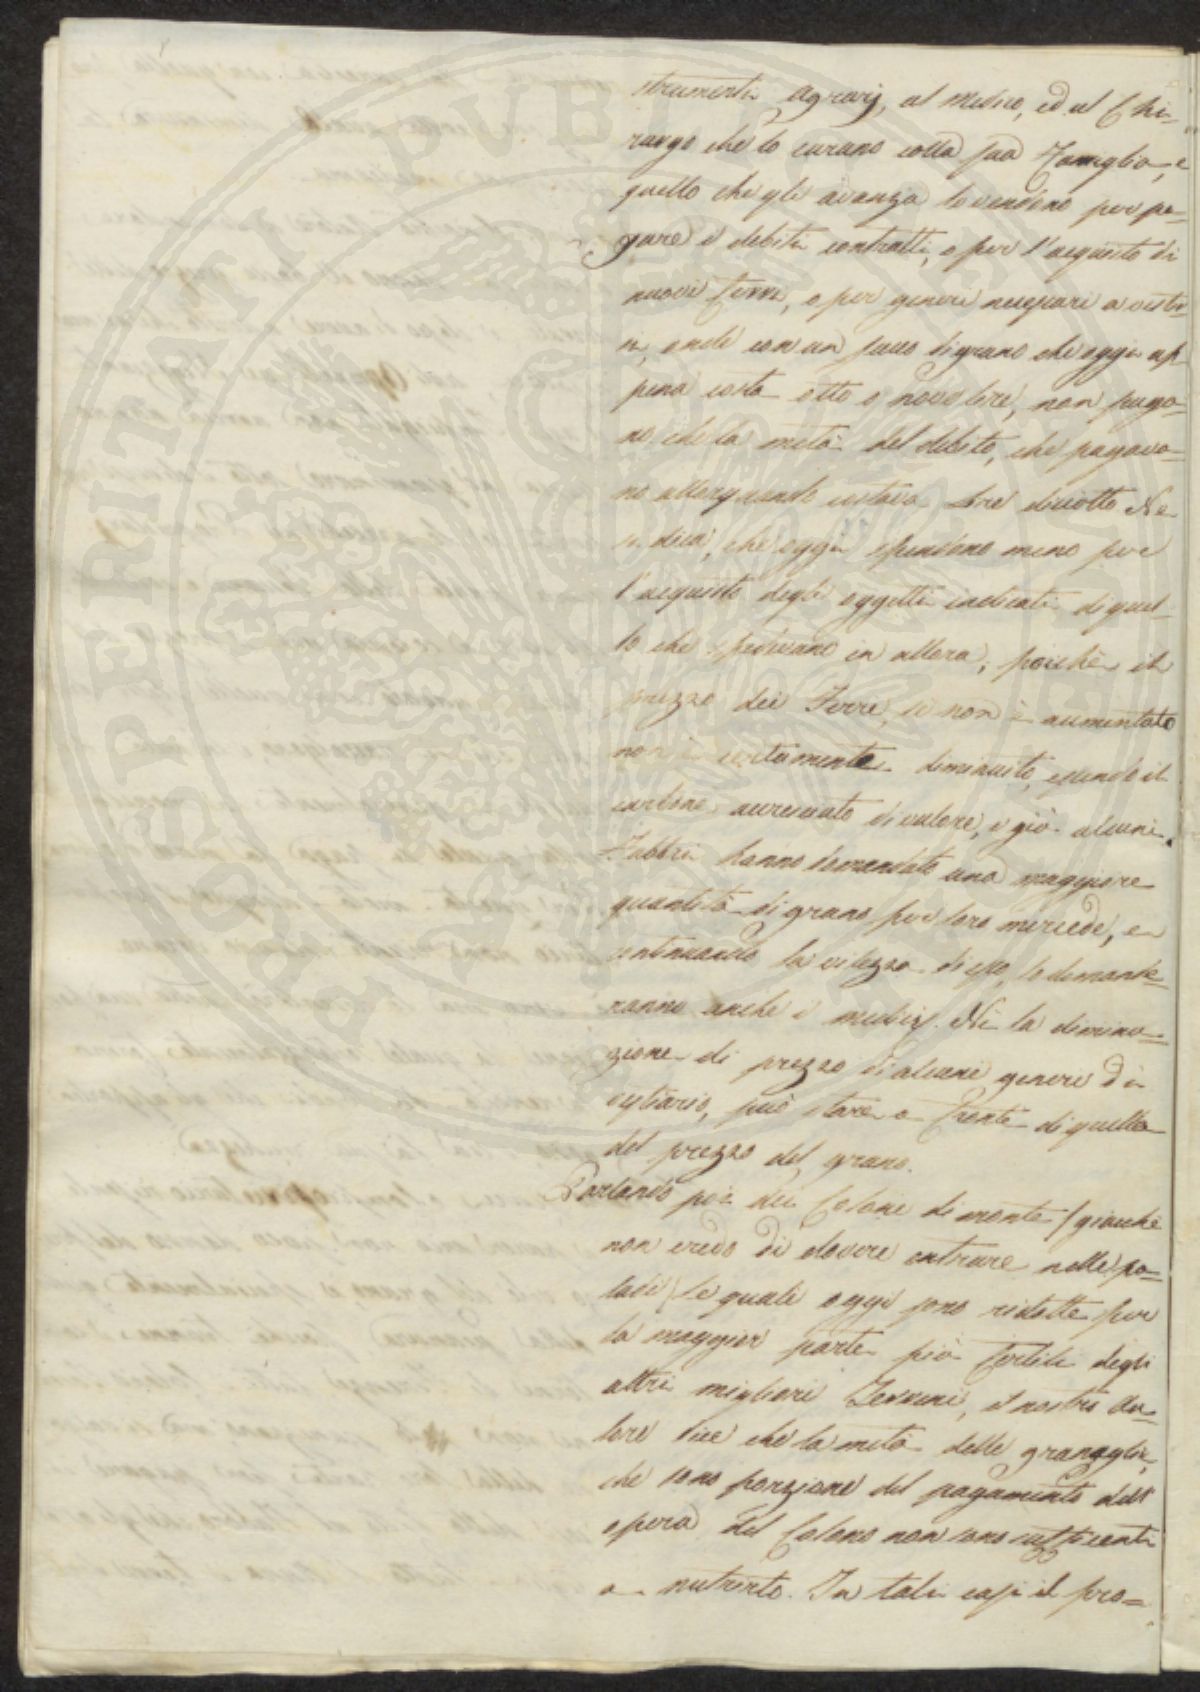 strumenti agrarj, al medico, ed al Chi-
rurgo che lo curano colla sua Famiglia, e
quello che gli avanza lo vendono per pa-
gare i debiti contratti, o per l'acquisto di
nuovi ferri, o per generi necessari a vestir-
si, onde con un sacco di grano che oggi ap-
pena costa otto o nove lire, non paga-
no che la metà del debito, che pagava-
no allorquando costava lire diciotto Ne
si dica, che oggi spendono meno per
l'acquisto degli oggetti indicati di quel-
lo che spendevano in allora, poichè il
prezzo dei Ferri, se non è aumentato
non è certamente diminuito, essendo il
carbone accresciuto di valore, e già alcuni
Fabbri hanno domandato una maggiore
quantità di grano per loro mercede, e
continuando la vilezza di esso, lo domande-
ranno anche i medici. Nè la diminu-
zione di prezzo di alcuni generi di
vestiario, può stare a fronte di quella
del prezzo del grano.
Parlando poi dei Coloni di monte (giacchè
non credo di dovere entrare nelle pa-
ludi) le quali oggi sono ridotte per
la maggior parte più fertili degli
altri migliori Terreni, il nostro Au-
tore dice che la metà delle granaglie,
che sono porzione del pagamento dell'
opera del Colono non sono sufficienti
a nutrirlo. In tali casi il pro-
PROSPERITATI PUBLICAE AUGENDAE